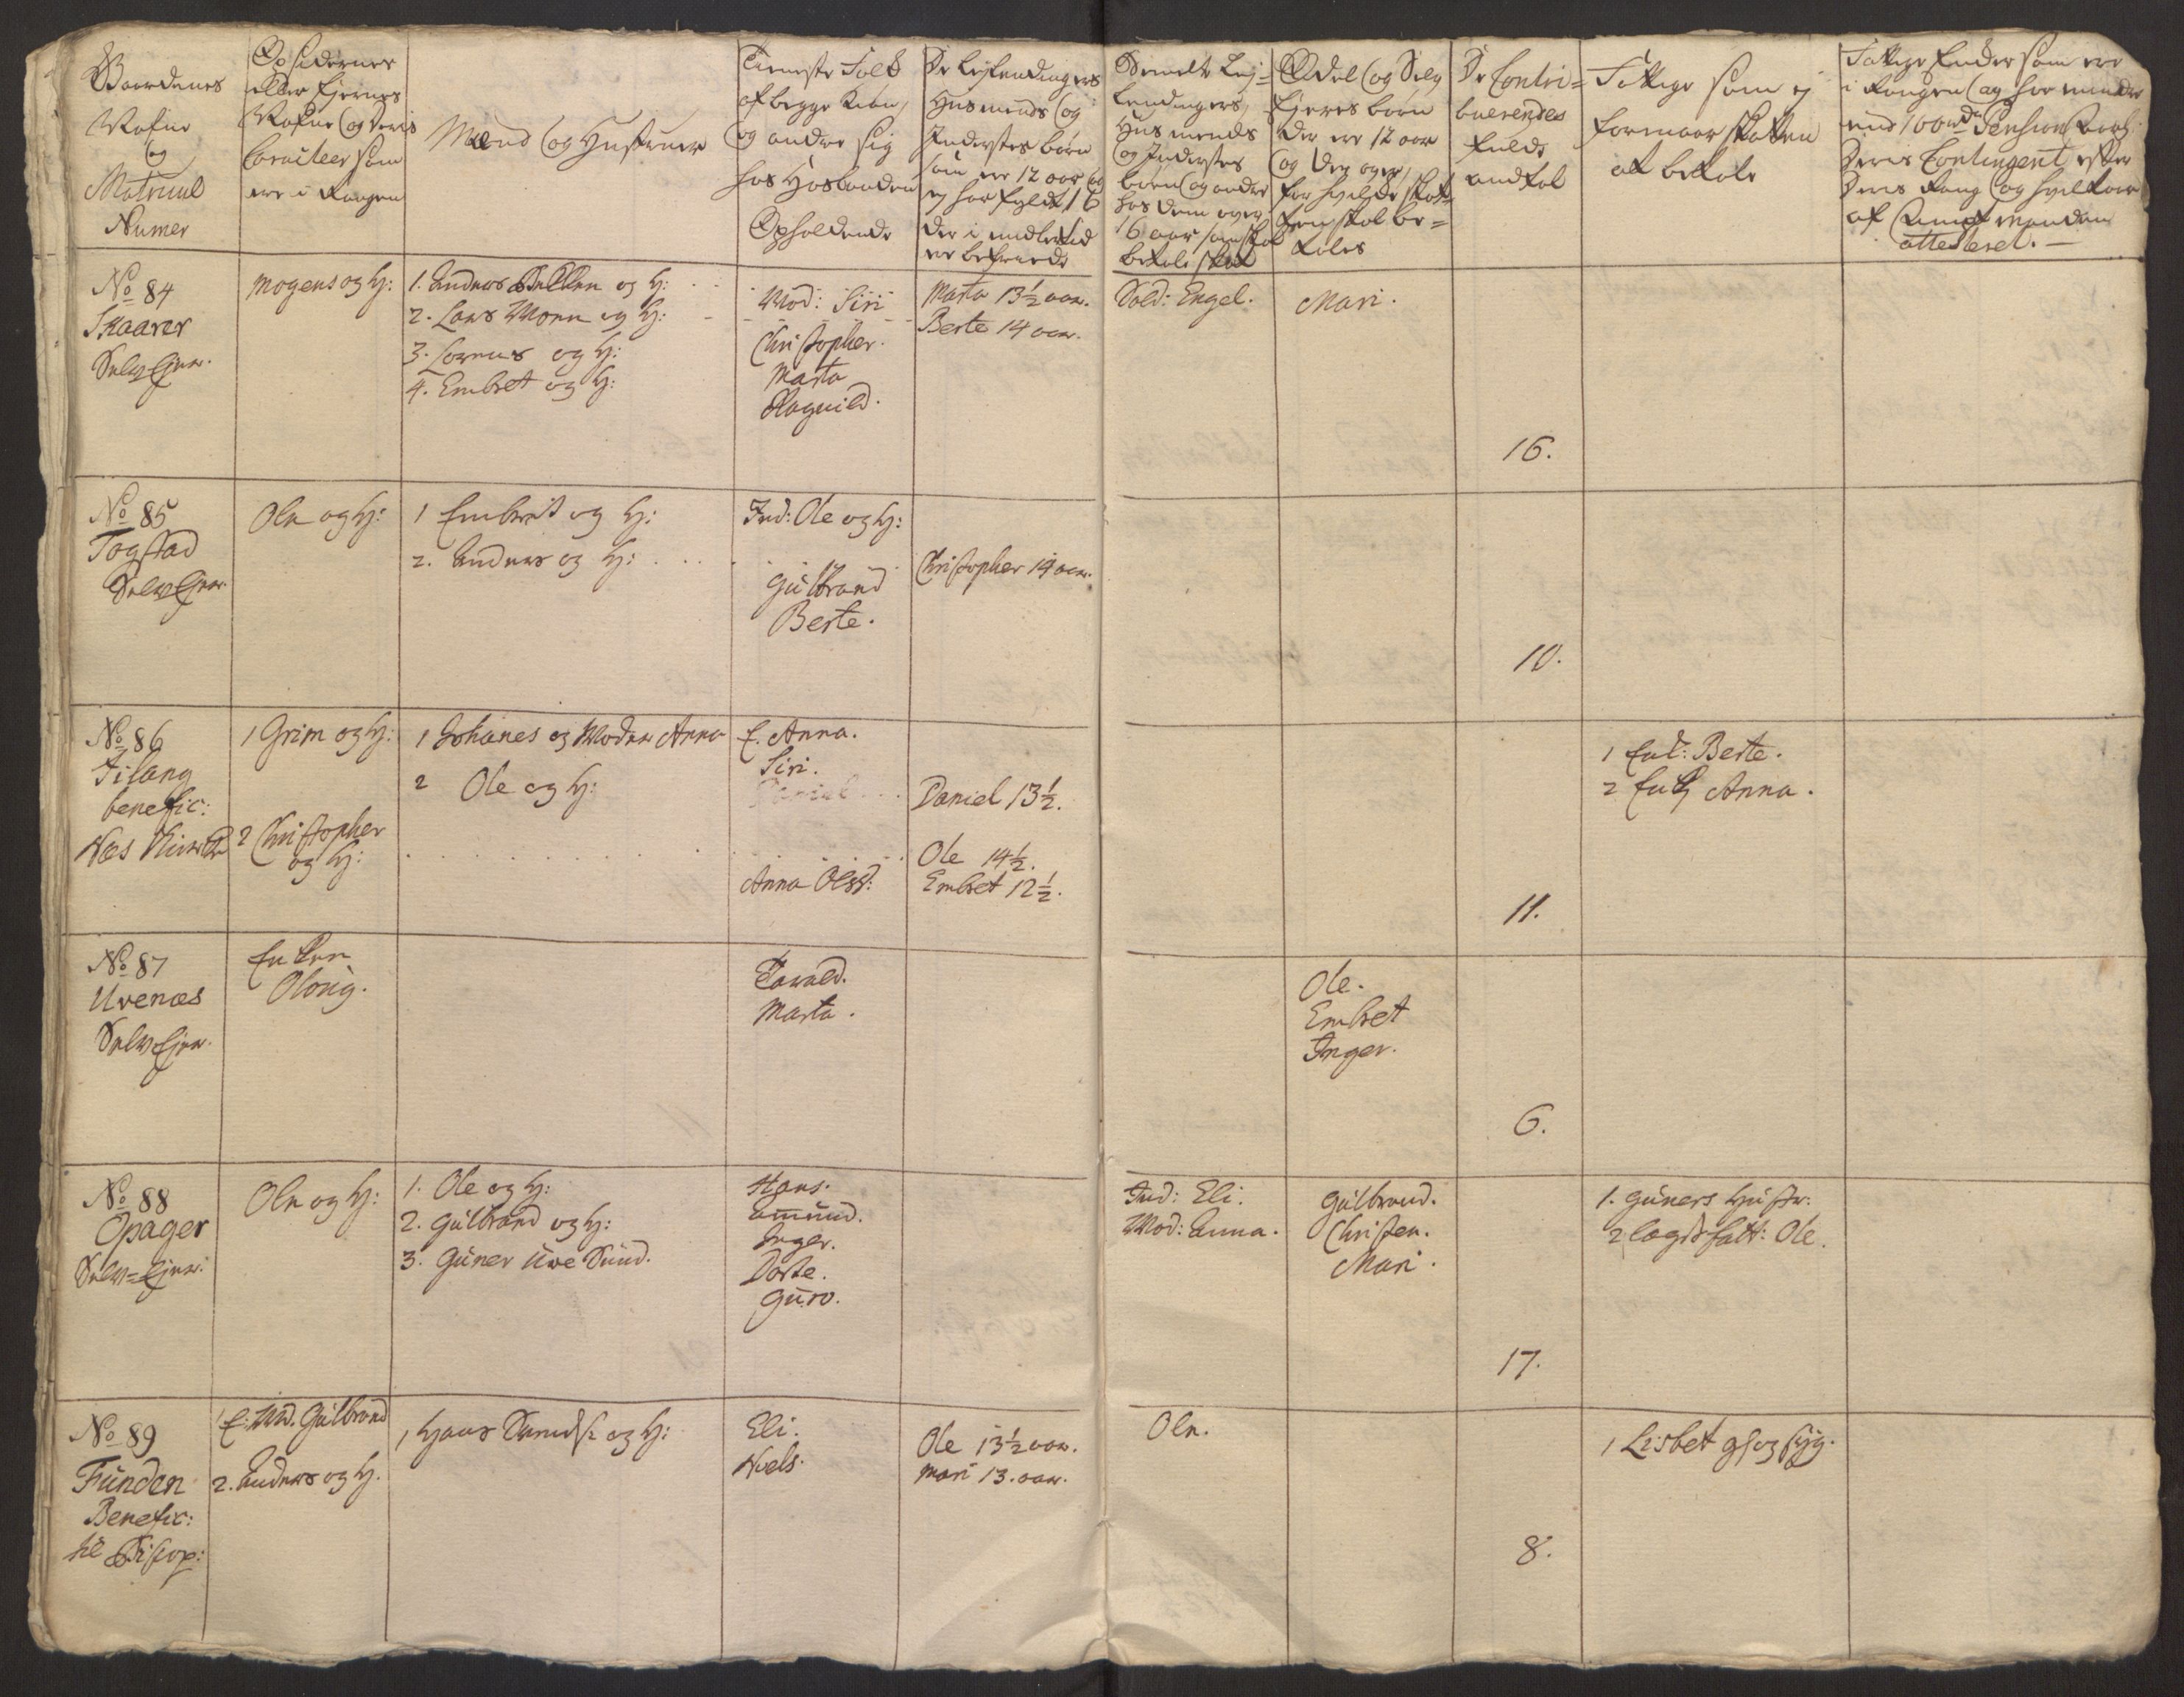 Gaardenes
Nafne
og
Matricul
Numer
Opsidernes
eller Ejernes
Nafne og Deris
Caracteer som
ere i Rangen
Mænd og Hustruer
Tieneste Folk
af begge Kiøn,
og andre sig
hos Hosbonden
Opholdende
De Leylendingers
Huusmends og
Inderstes børn
som ere 12 aar og
ej har fyldt 16
der i midlertid
er befriede
Bemelte Ley-
lendingers,
Huusmends
og Inderstes
børn og andre
hos dem over
16 aar som skal
betale skat
Odel og Selv
Ejeres børn
der ere 12 aar
og der over,
for hvilke skat-
ten skal be-
tales
De Contri-
buerendes
fulde
andtal
Fattige som ej
formaar skatten
at betale
Fattige Enker som ere
i Rangen og har mindre
end 100 rd Pension
Deris Contingent efter
Deris Rang og Hvilket
af Amtmanden
attesteret.
No 84
Skaarer
Selv Ejer.
Mogens og H:
1. Anders og H:
2. Lars Moen og H:
3. Lorens og H:
4. Embret og H:
Mod: Siri
Christopher.
Marta
Ragnild.
Marta 13½ aar.
Berte 14 aar.
Sold: Engel.
Mari.
16.
No 85
Togstad
Selv Ejer
Ole og H:
1 Embret og H:
2. Anders og H:
Ind: Ole og H:
Gulbrand
Berte.
Christopher 14 aar.
10.
No 86
Filang
benefic:
Næs Kirke
1 Grim og H:
2 Christopher
og H:
1 Johanes og Moder Anna
2 Ole og H:
E. Anna.
Siri.
Anna Olsd:
Daniel 13½.
Ole 14½.
Embret 12½.
11.
1 Enk: Berte.
2 Enk: Anna.
No 87
Uvenæs
Selv Ejer.
Enken
Oloug.
Tarald.
Marta.
Ole.
Embret
Inger.
6.
No 88
Opager
Selv=Ejer.
Ole og H:
1. Ole og H:
2. Gulbrand og H:
3. Guner Uve Sund.
Hans.
Amund.
Inger.
Dorte.
Guro.
Ind: Eli.
Mod: Anna.
Gulbrand.
Christen.
Mari.
17.
1. Guners Hustr:
2 Lægds fatt: Ole.
No 89
Funden
Benefic:
til Bisop:
1 E. Md. Gulbrand
2. Anders og H.
1 Hans Svends: og H:
Eli.
Niels.
Ole 13½ aar.
Mari 13. aar.
Ole.
8.
1 Lisbet gl og syg.